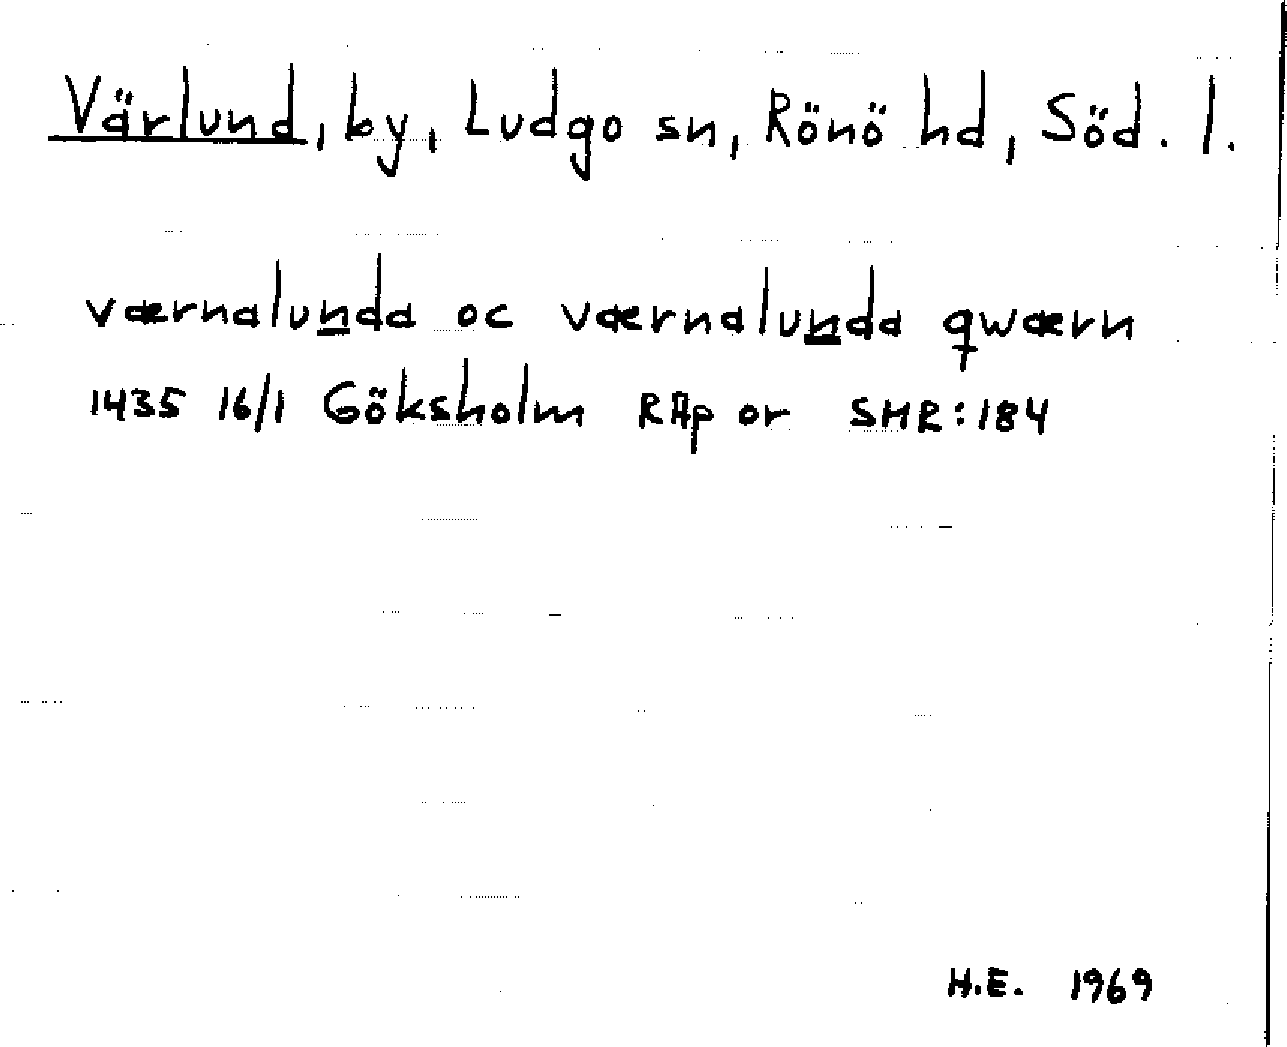 Värlund, by, Ludgo sn, Rönö hd, Söd. l.
værnalunda oc værnalunda qwærn
1435 16/1 Göksholm RAp or SMR:184
H.E. 1969